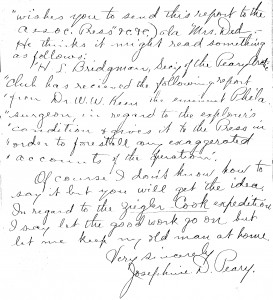 "wishes you to send this report to the
"Assoc. Press &c &c.) o/o Mrs.
He thinks it might read something
as follows:
"H. L. Bridgman, Sec'y of the Peary Arctic
"Club has received the following report
"from Dr. W. W. Keen the eminent Phila.
"surgeon, in regard to the explorer's
"condition & gives it to the Press in
"order to forestall any exaggerated
"accounts of the operation."
Of course I don't know how to
say it but you will get the idea.
In regard to the Ziegler Cook expedition
I say let the good work go on but
let me keep my old man at home.
Very sincerely
Josephine D. Peary.